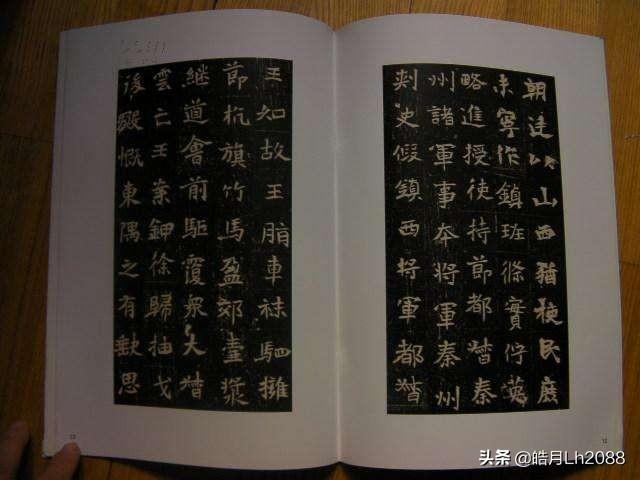 朝廷以山西猶梗民庶
未寧作鎮班條實佇英
略進授使持節都督秦
州諸軍事本將軍秦州
刺史假鎮西將軍都督
12
王如故王脂車秣駟擁
節杭旗竹馬盈郊壺漿
継道會前駈覆衆大督
雲亡王棄鉀徐歸抽戈
後殿慨東隅之有歎思
13
头条 @皓月Lh2088